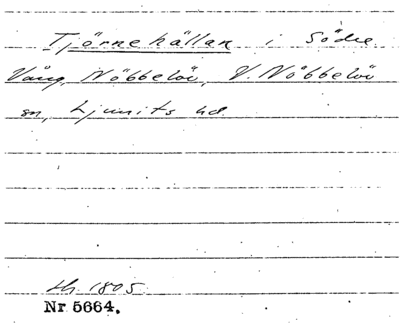 Tjörnekällan i Södre
Vång, Nöbbelöv, V. Nöbbelöv
sn, Ljunits hd.
th. 1805
Nr 5664.